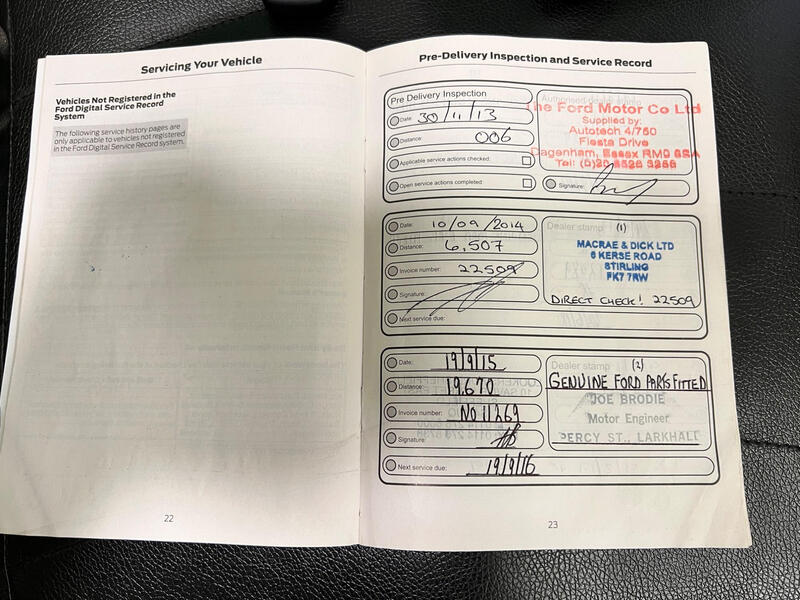 Servicing Your Vehicle
Vehicles Not Registered in the
Ford Digital Service Record
System
The following service history pages are
only applicable to vehicles not registered
in the Ford Digital Service Record system.
22
Pre-Delivery Inspection and Service Record
Pre Delivery Inspection
Date: 30/11/13
Distance: 006
Applicable service actions checked:
Open service actions completed:
The Ford Motor Co Ltd
Supplied by:
Autotech 4/760
Fiesta Drive
Dagenham, Essex RM9 6SA
Signature:
Date: 10/09/2014
Distance: 6,507
Invoice number: 22509
Signature:
Next service due:
Dealer stamp (1)
MACRAE & DICK LTD
6 KERSE ROAD
STIRLING
FK7 7RW
DIRECT CHECK! 22509
Date: 19/9/15
Distance: 19,670
Invoice number: NO 11269
Signature:
Next service due: 19/9/16
Dealer stamp (2)
GENUINE FORD PARTS FITTED
JOE BRODIE
Motor Engineer
PERCY ST., LARKHALL
23